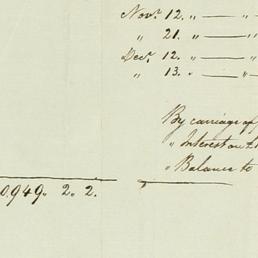 Novr. 12. " — " —
" 21. " — " —
Decr. 12. " — " —
" 13. " — " —
By carriage of
" Interest on
" Balance to
0,949. 2. 2.